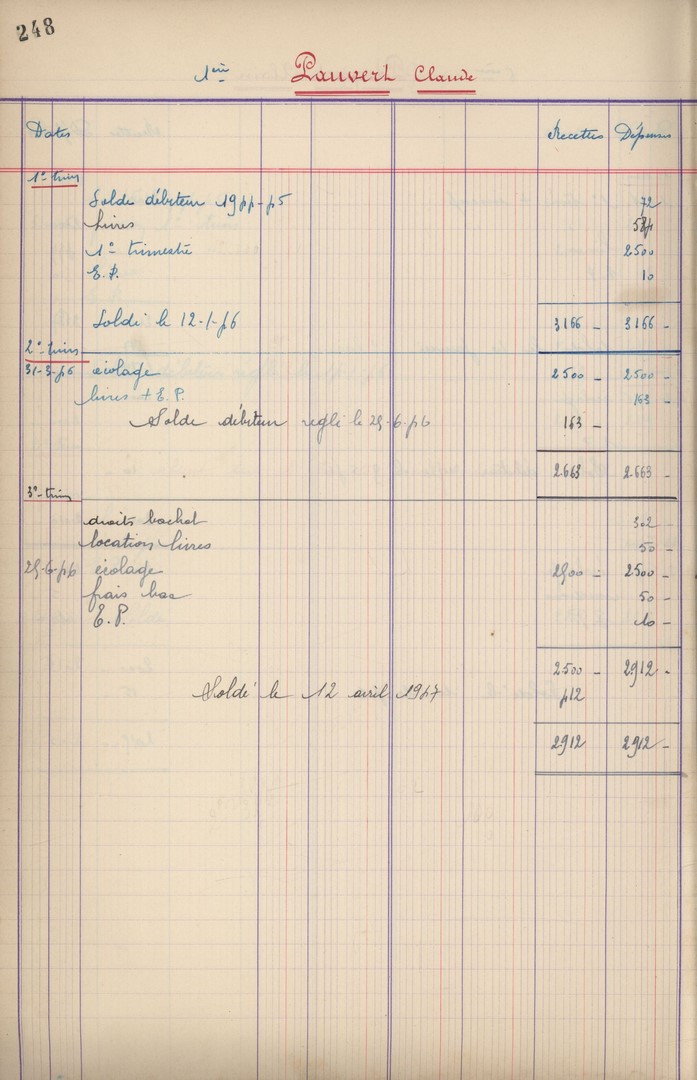 248
1ère Pauvert Claude
Dates Recettes Dépenses
1er trim
Solde débiteur 1944-45 72
livres 584
1er trimestre 2500
E.P. 10
Soldé le 12-1-46 3166 - 3166 -
2e trim
31-3-46 écolage 2500 - 2500 -
livres + E.P. 163 -
Solde débiteur réglé le 29-6-46 163 -
2663 2663 -
3e trim
droits bachot 302 -
location livres 50 -
29-6-46 écolage 2500 - 2500 -
frais bac 50 -
E.P. 10 -
2500 - 2912 -
Soldé le 12 avril 1947 412
2912 2912 -